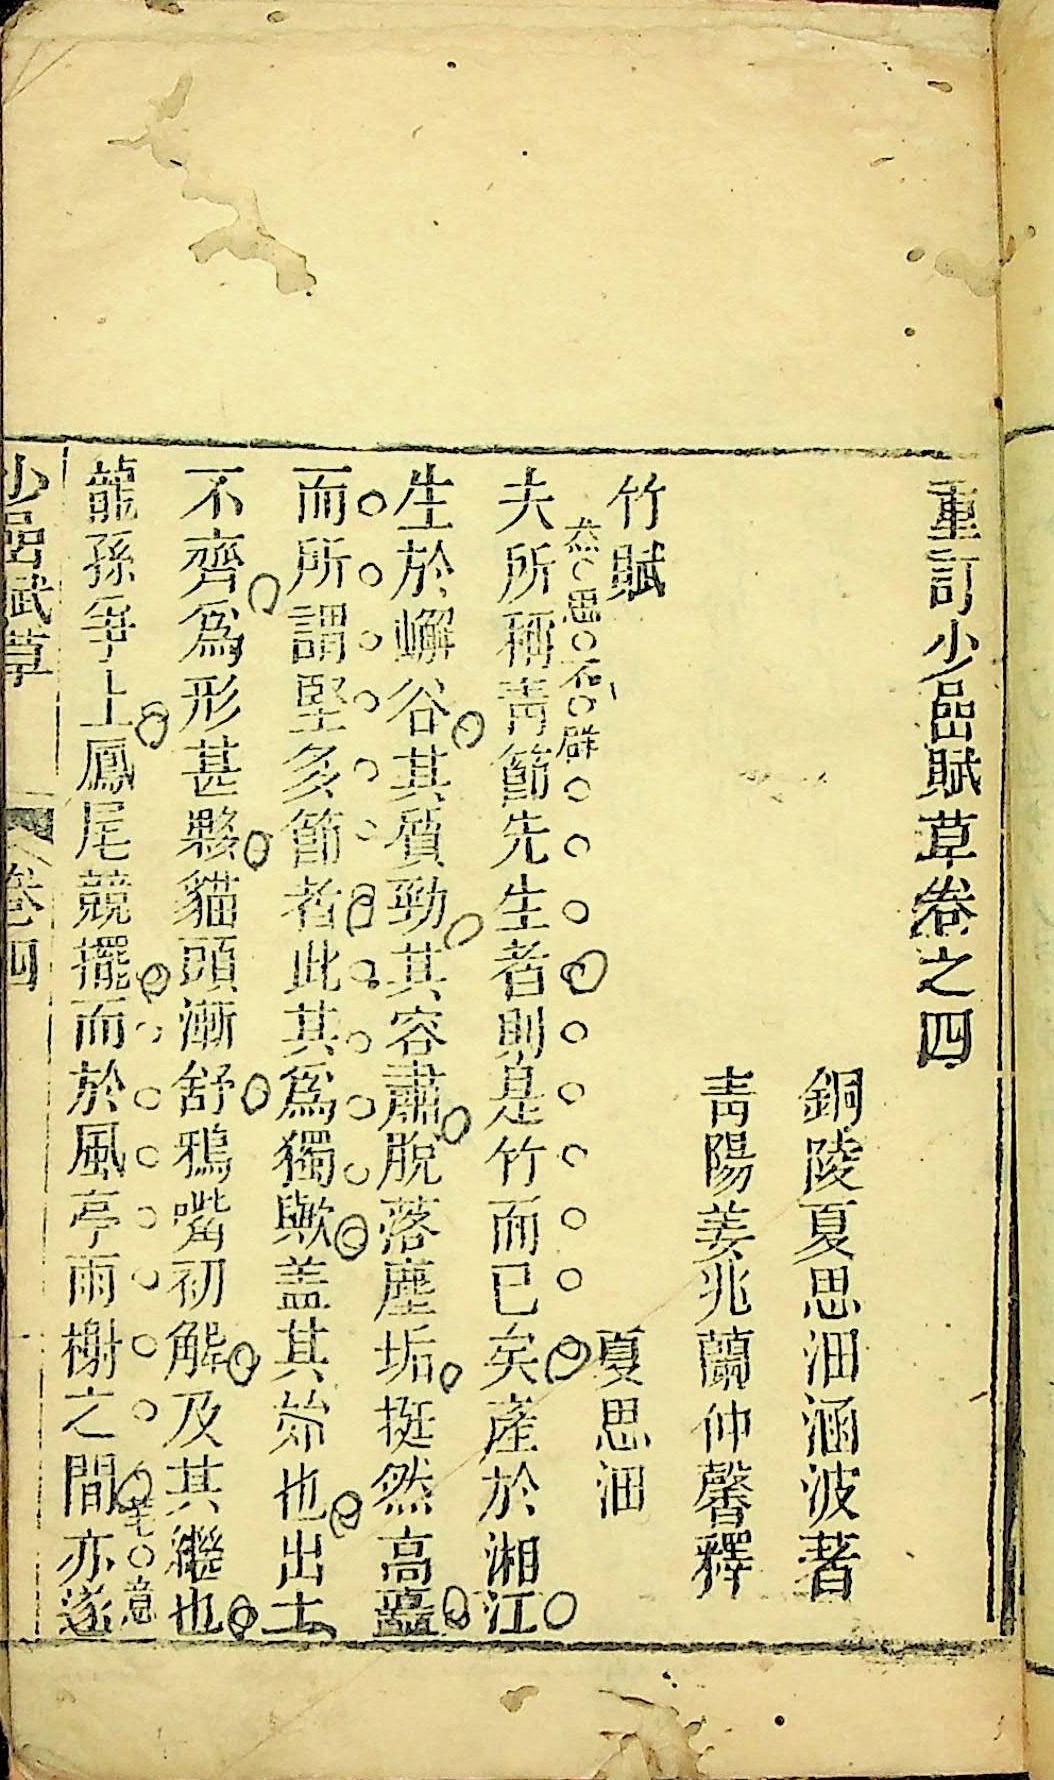 重訂少嵒賦草卷之四
銅陵夏思沺涵波著
青陽姜兆蘭仲馨釋
竹賦
夏思沺
然思不群
夫所稱青節先生者則是竹而已矣產於湘江
生於嶰谷其質勁其容肅脫落塵垢挺然高矗
而所謂堅多節者此其為獨歟盖其始也出土
不齊為形甚夥貓頭漸舒鴉嘴初解及其繼也
笔意
龍孫爭上鳳尾競擺而於風亭雨榭之間亦遂
少嵒賦草 卷四 一